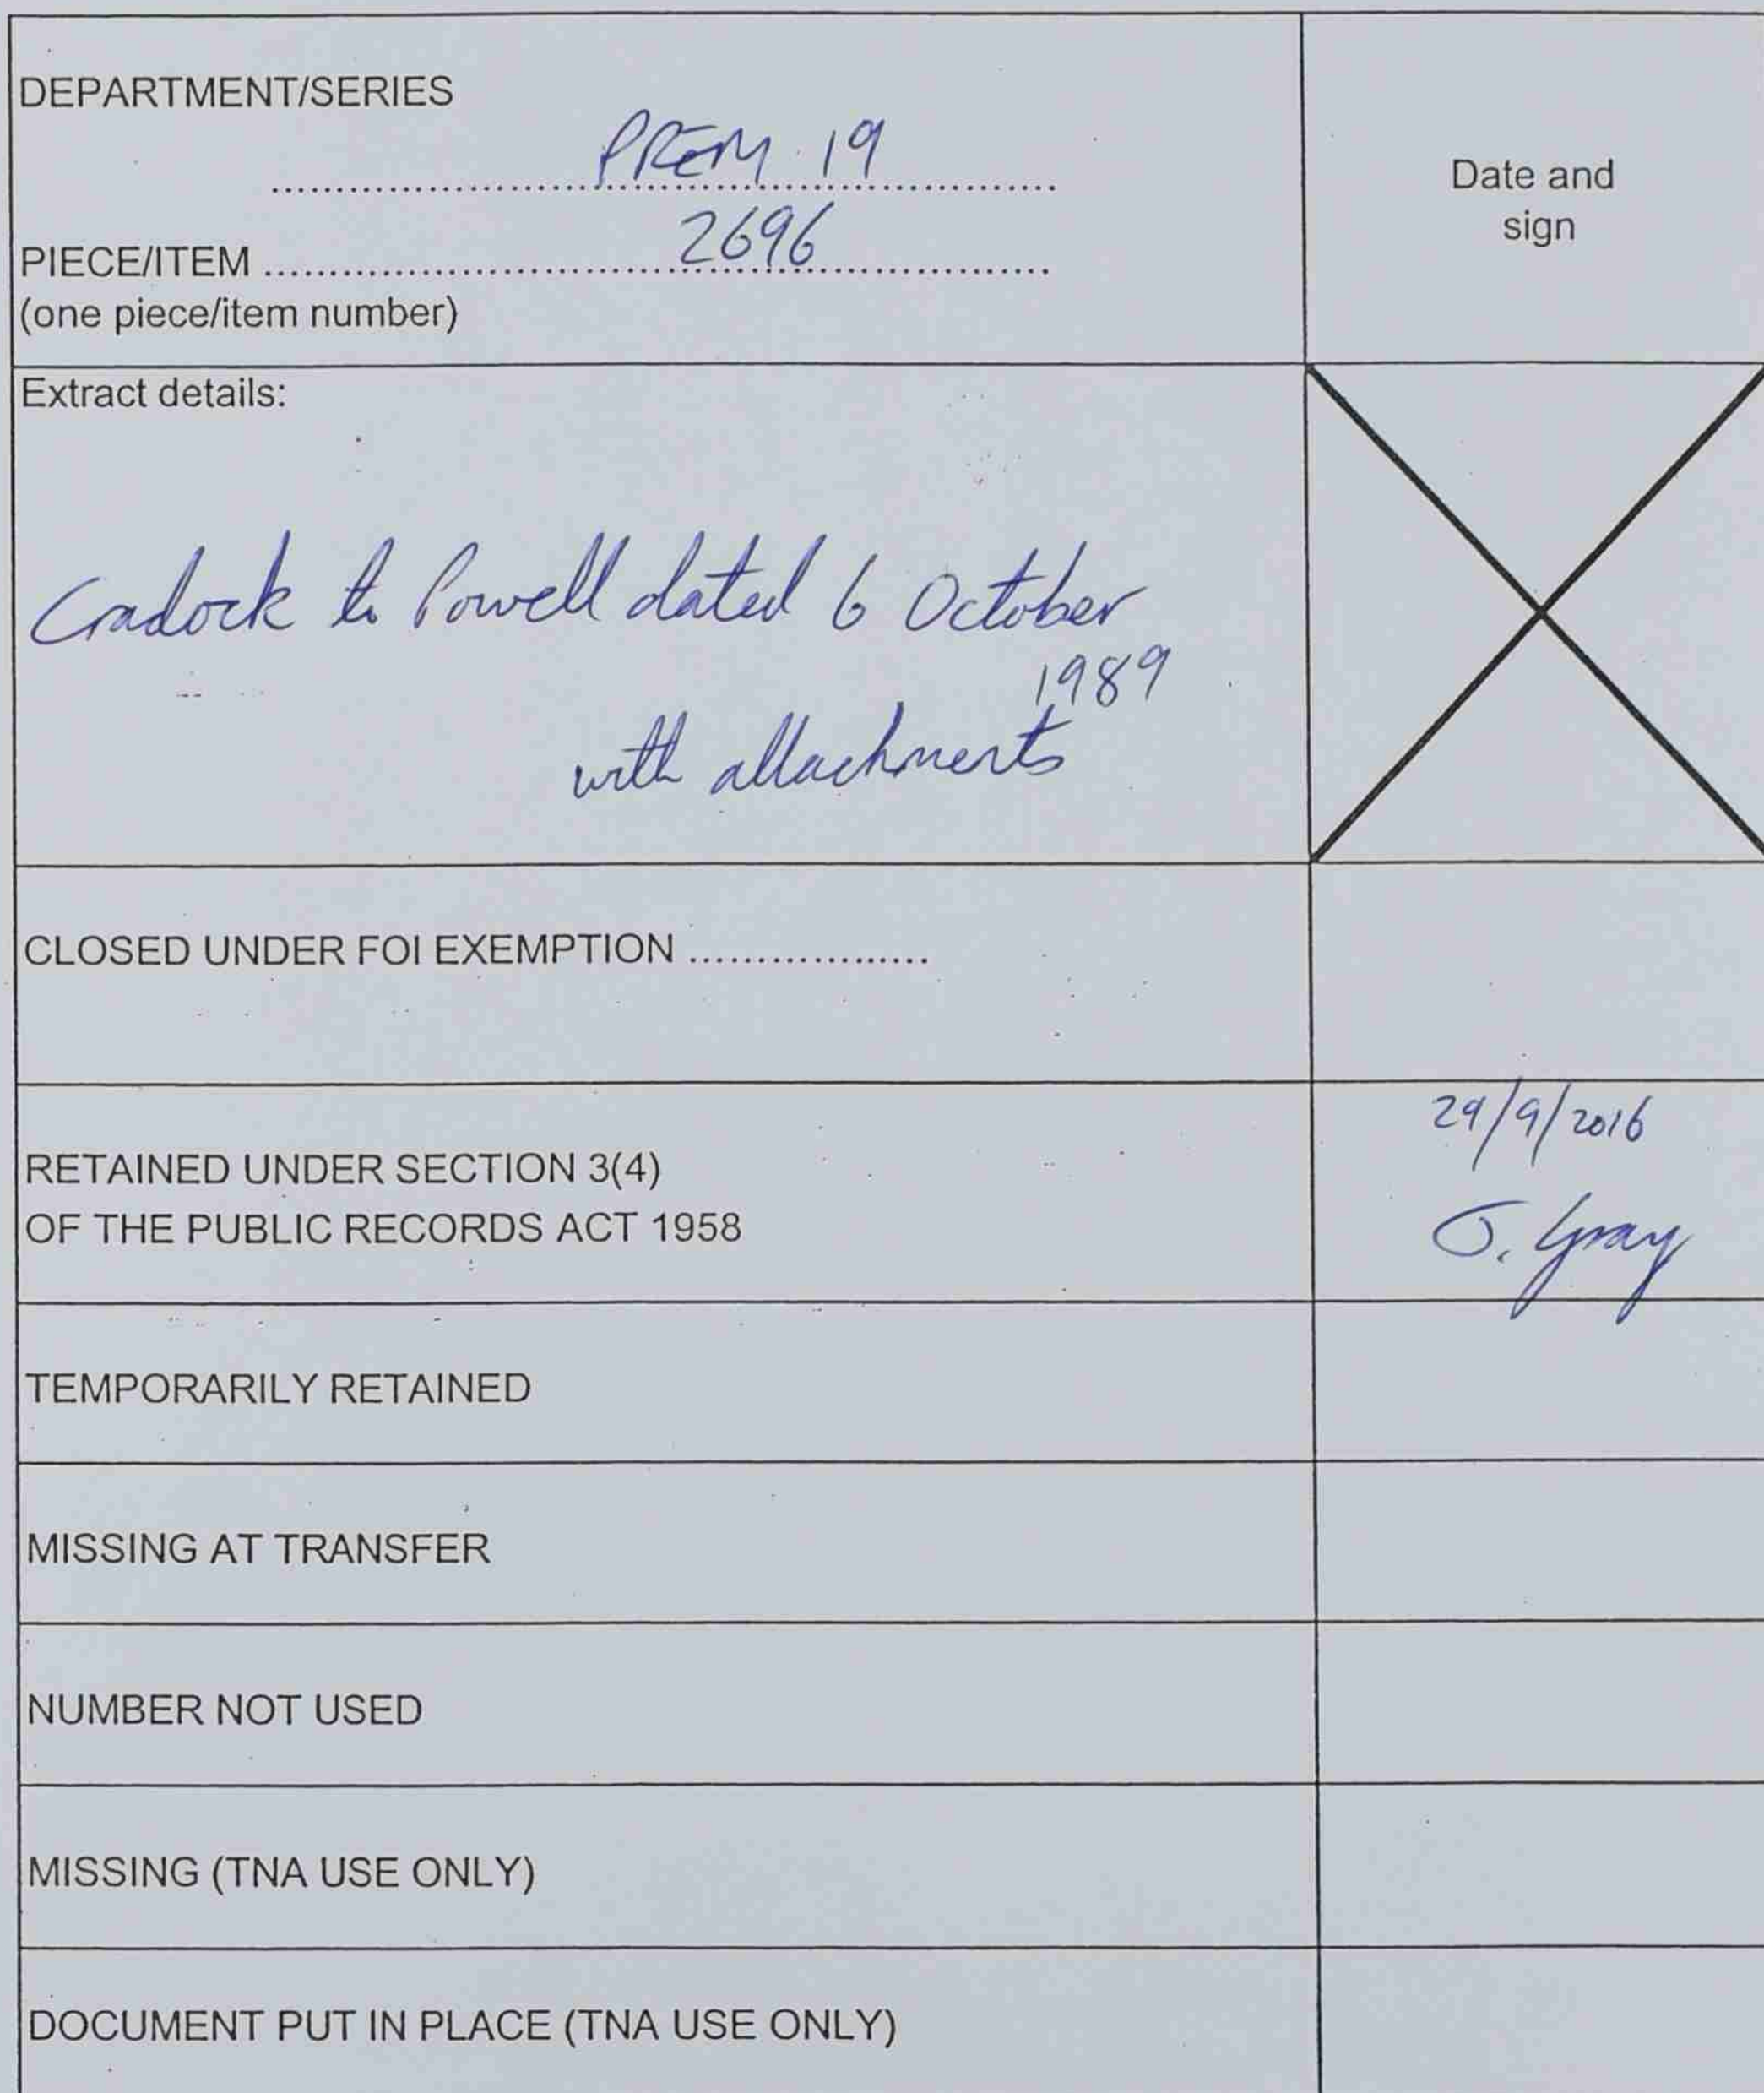 DEPARTMENT/SERIES
PREM 19
Date and
sign
PIECE/ITEM 2696
(one piece/item number)
Extract details:
Cradock to Powell dated 6 October
1989
with attachments
CLOSED UNDER FOI EXEMPTION ..................
RETAINED UNDER SECTION 3(4)
OF THE PUBLIC RECORDS ACT 1958
29/9/2016
J. Gray
TEMPORARILY RETAINED
MISSING AT TRANSFER
NUMBER NOT USED
MISSING (TNA USE ONLY)
DOCUMENT PUT IN PLACE (TNA USE ONLY)